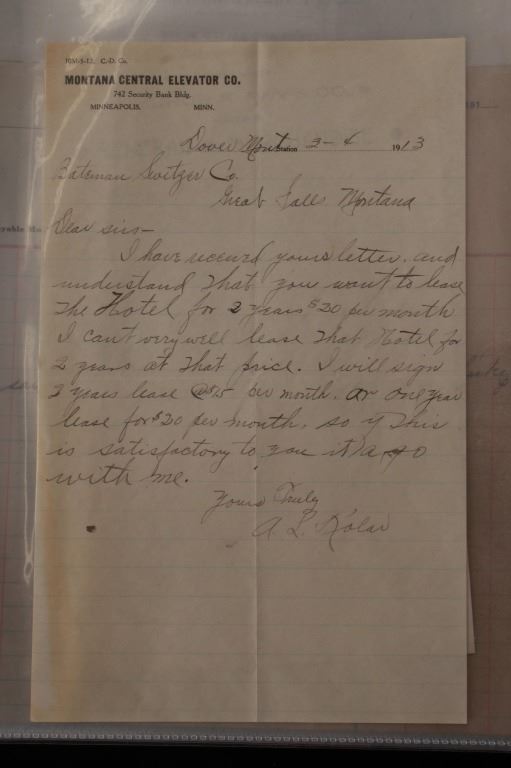 10M-5-12. C.-D. Co.
MONTANA CENTRAL ELEVATOR CO.
742 Security Bank Bldg.
MINNEAPOLIS, MINN.
Dover Mont Station 3-4 1913
Bateman Switzer Co.
Great Falls Montana
Dear sirs-
I have received yours letter. and
understand That you want to lease
The Hotel for 2 years $20 per month
I can't very well lease That Hotel for
2 years at That price. I will sign
2 years lease @ per month. or one year
lease for $20 per month. so if This
is satisfactory to you it
with me.
Yours Truly
A. L. Kolar